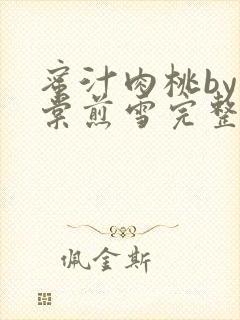 蜜汁肉桃by
棠煎雪完整
佩金斯